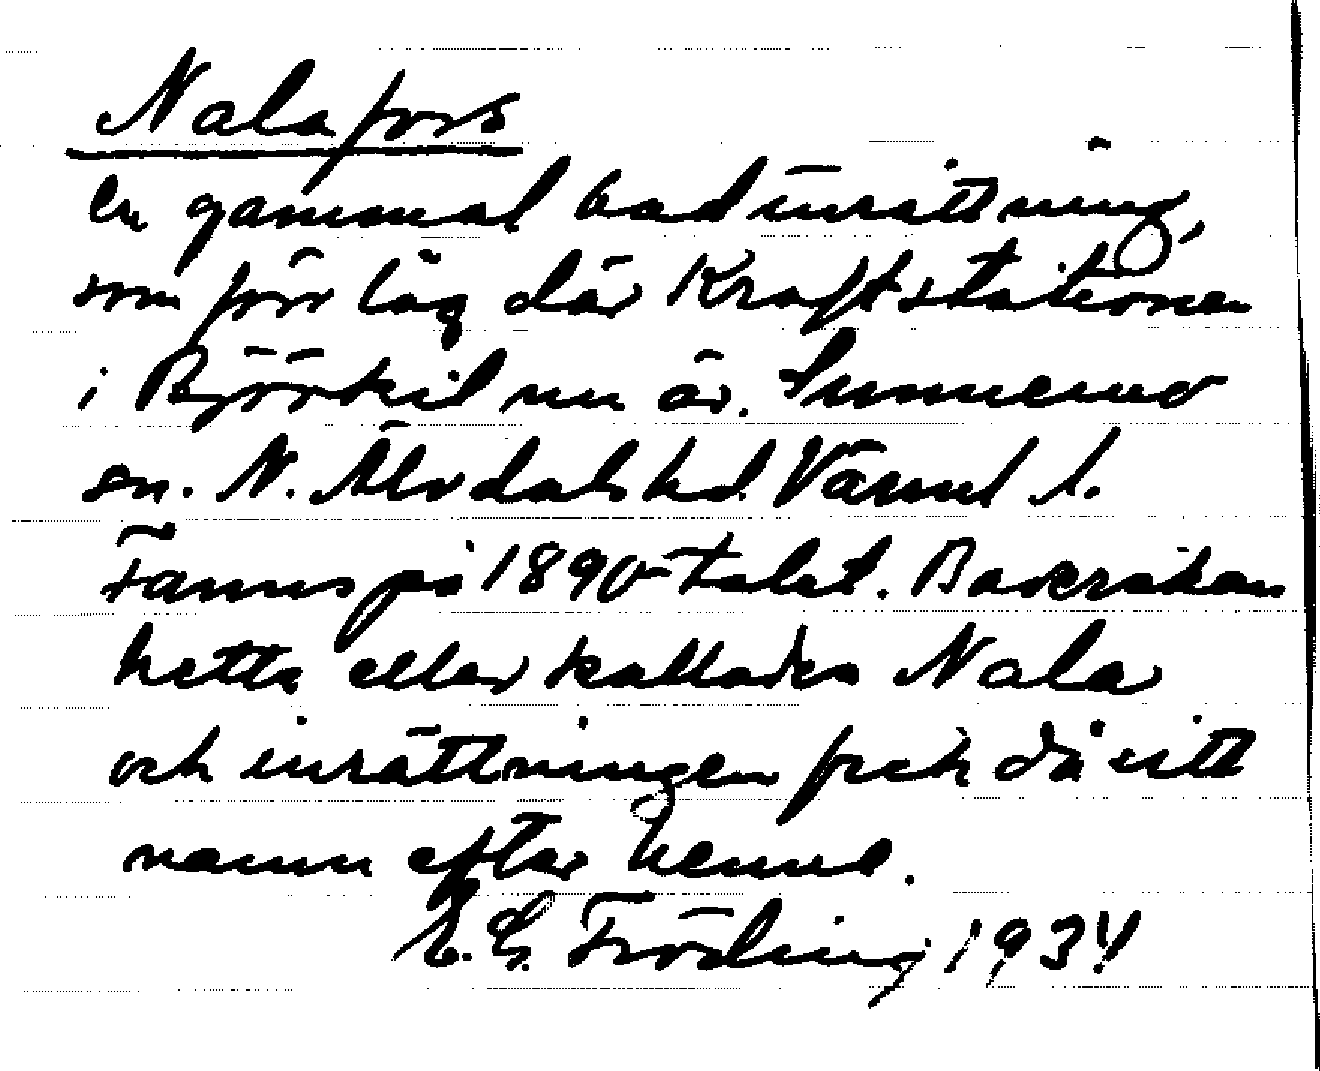 Nalafors
En gammal badinrättning,
som förr låg där Kraftstationen
i Björkil nu är. Sunnemo
sn. N. Älvdals hd. Värml l.
Fanns på 1890-talet. Baderskan
hette eller kallades Nala
och inrättningen fick då sitt
namn efter henne.
E. G. Fröding 1934